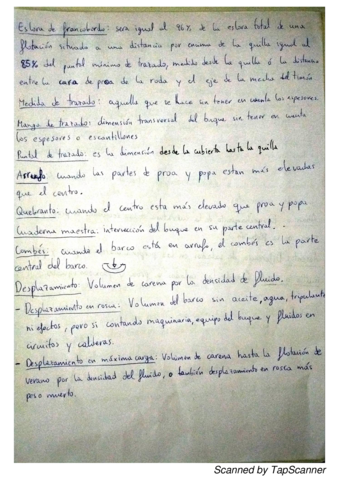 Eslora de francobordo: sera igual al 96% de la eslora total de una
flotación situada a una distancia por encima de la quilla igual al
85% del puntal mínimo de trazado, medido desde la quilla ó la distancia
entre la cara de proa de la roda y el eje de la mecha del timón
Medida de trazado: aquella que se hace sin tener en cuenta los espesores.
Manga de trazado: dimensión transversal del buque sin tener en cuenta
los espesores o escantillones
Puntal de trazado: es la dimensión desde la cubierta hasta la quilla
Arrufo: cuando las partes de proa y popa estan más elevadas
que el centro.
Quebranto: cuando el centro esta más elevado que proa y popa
Cuaderna maestra: intersección del buque en su parte central.
Combés: cuando el barco está en arrufo, el combés es la parte
central del barco.
Desplazamiento: Volumen de carena por la densidad de fluido.
- Desplazamiento en rosca: Volumen del barco sin aceite, agua, tripulantes
ni efectos, pero si contando maquinaria, equipo del buque y fluidos en
circuitos y calderas.
- Desplazamiento en máxima carga: Volumen de carena hasta la flotación de
verano por la densidad del fluido, o también desplazamiento en rosca más
peso muerto.
Scanned by TapScanner